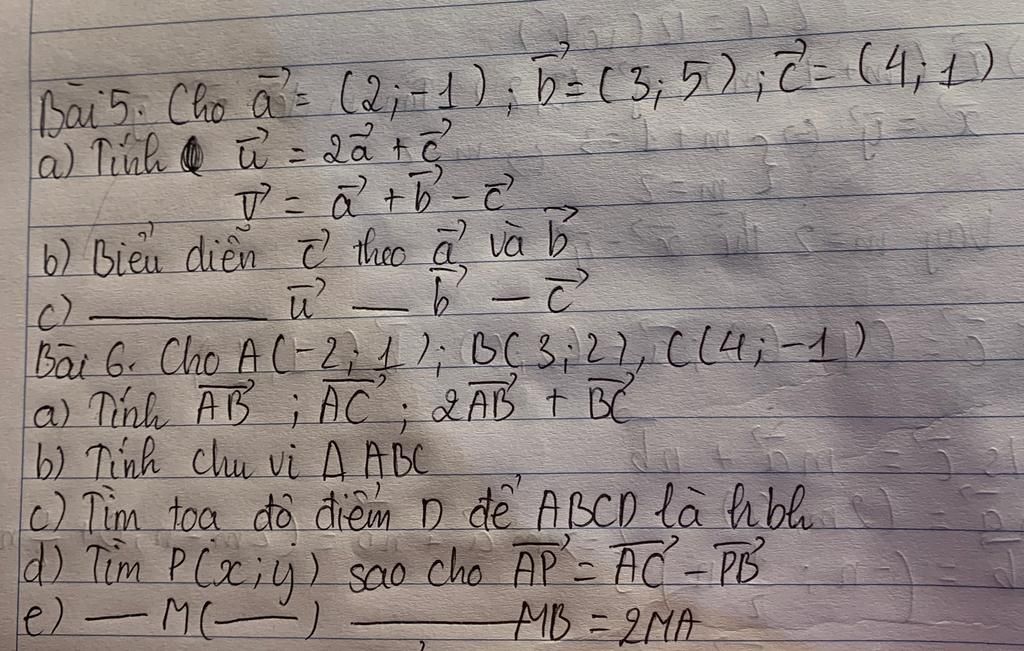 Bài 5. Cho a⃗ = (2;-1); b⃗ = (3;5); c⃗ = (4;1)
a) Tính u⃗ = 2a⃗ + c⃗
v⃗ = a⃗ + b⃗ - c⃗
b) Biểu diễn c⃗ theo a⃗ và b⃗
c) ———— u⃗ — b⃗ — c⃗
Bài 6. Cho A(-2;1); B(3;2), C(4;-1)
a) Tính A͞B⃗ ; A͞C⃗ ; 2A͞B⃗ + B͞C⃗
b) Tính chu vi Δ ABC
c) Tìm toạ độ điểm D để ABCD là hbh
d) Tìm P(x;y) sao cho A͞P⃗ = A͞C⃗ - P͞B⃗
e) — M(——) ———— MB = 2MA